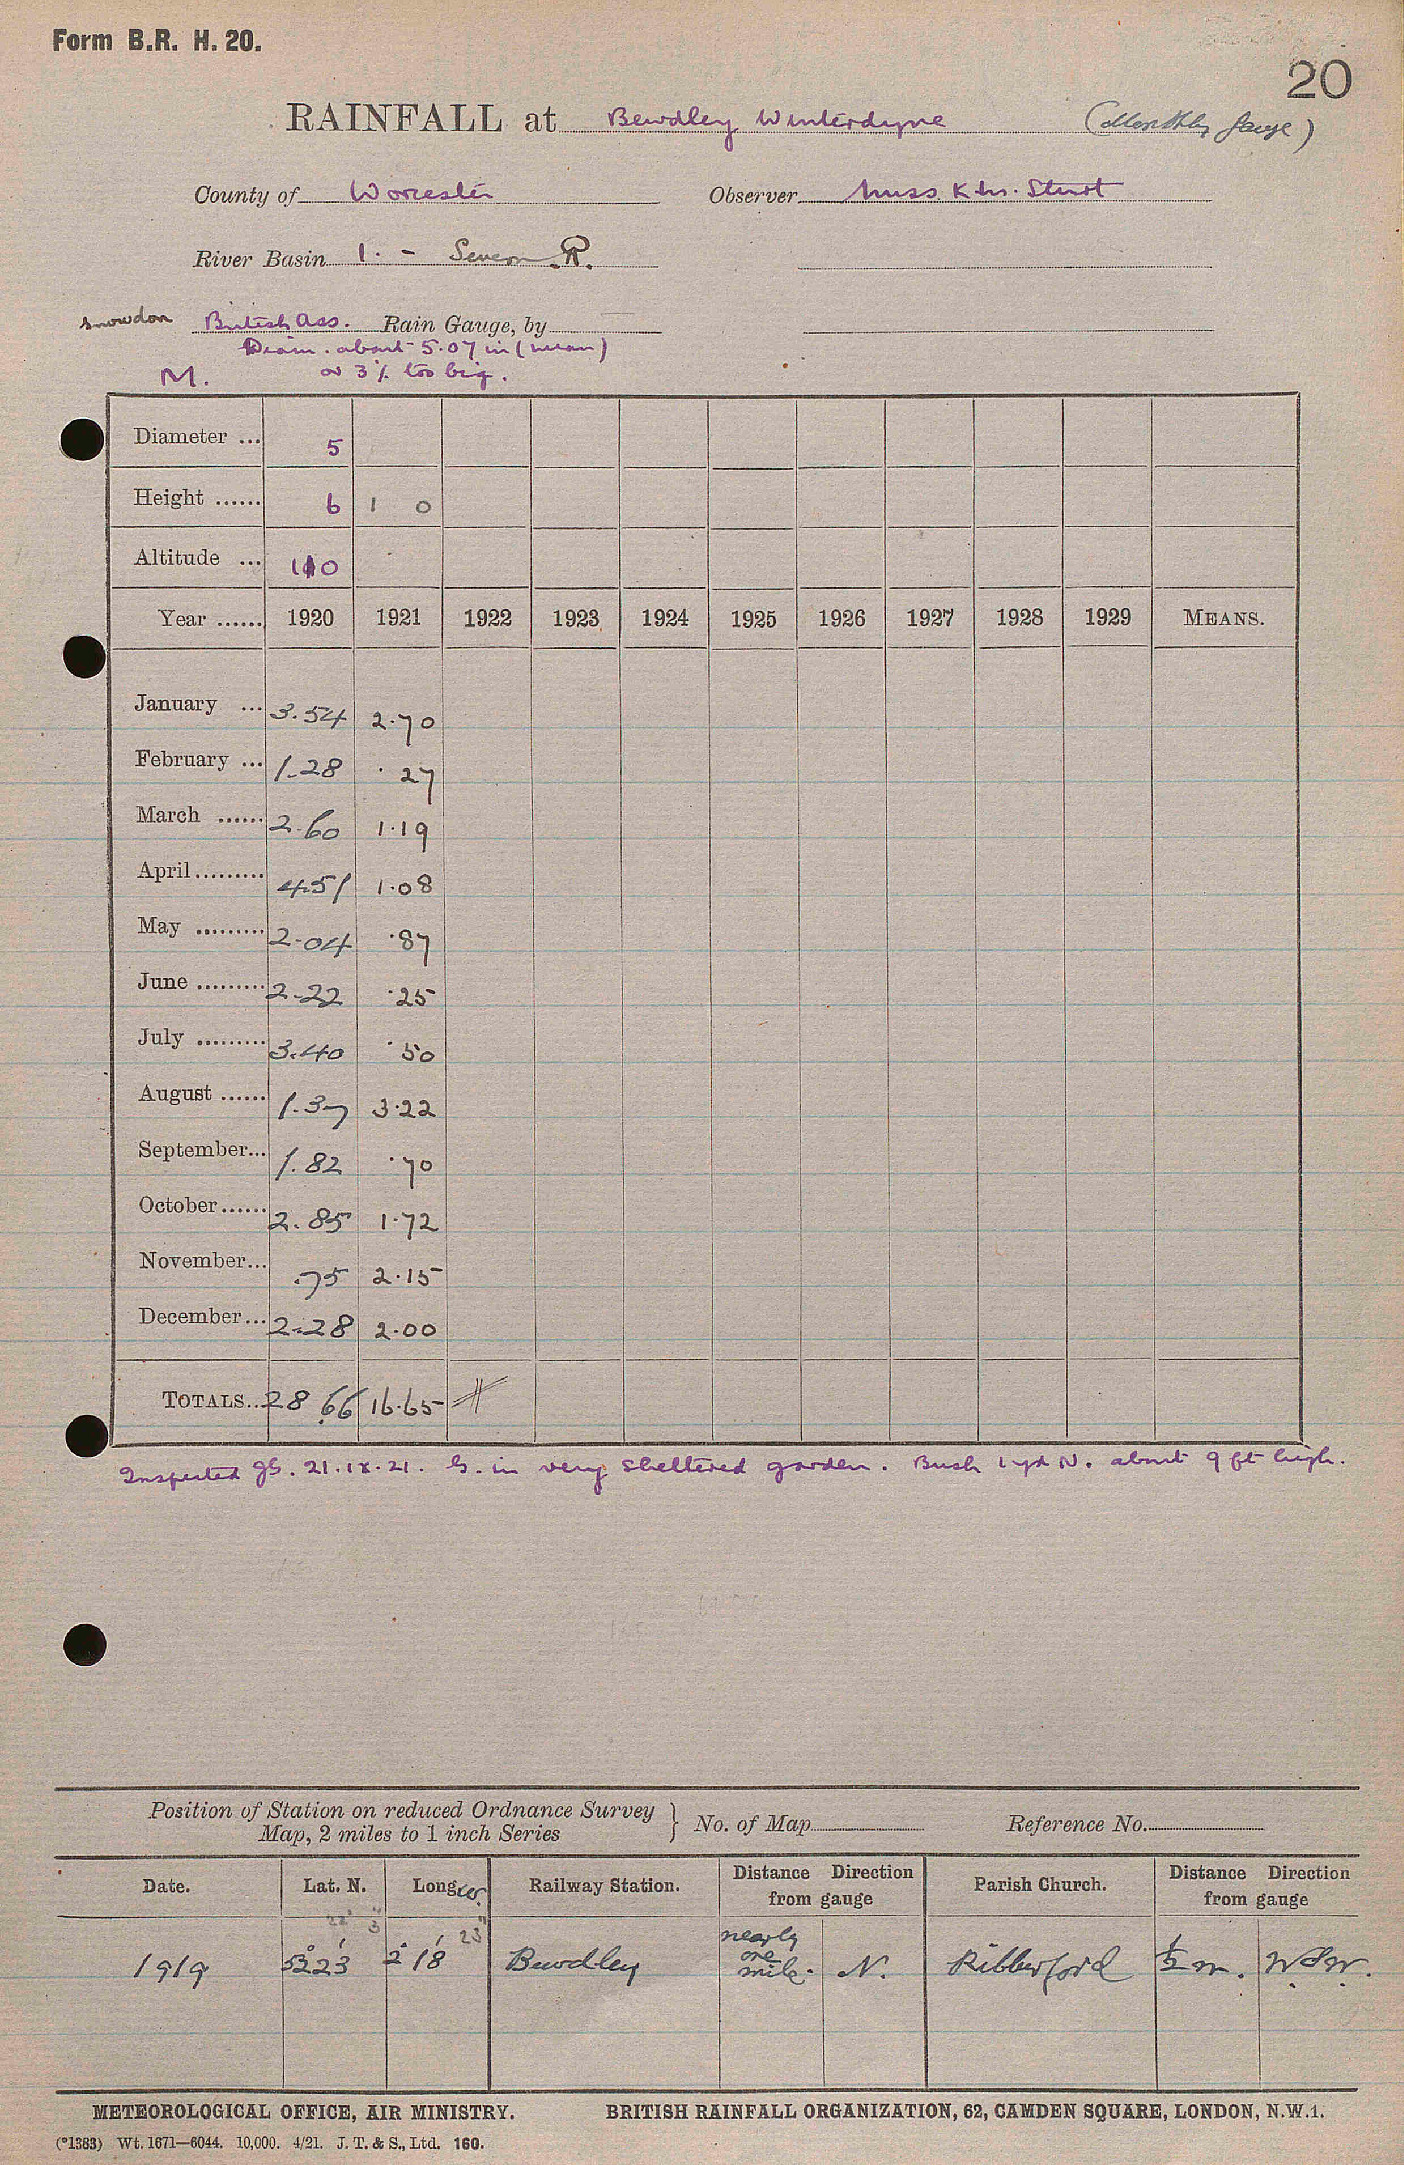 Form B.R. H. 20.
20
RAINFALL at Bewdley Winterdyne (Monthly Gauge)
County of Worcester Observer Miss K. M. Sturt
River Basin 1. - Severn R.
Snowdon British Ass. Rain Gauge, by
Diam. about 5.07 in (mean)
M. or 3% too big.
Diameter ... 5
Height ...... 6 1 0
Altitude ... 110
Year ...... 1920 1921 1922 1923 1924 1925 1926 1927 1928 1929 MEANS.
January ... 3.54 2.70
February ... 1.28 .27
March ...... 2.60 1.19
April......... 4.51 1.08
May ......... 2.04 .87
June ......... 2.22 .25
July ......... 3.40 .50
August ...... 1.37 3.22
September... 1.82 .70
October...... 2.85 1.72
November... .75 2.15
December... 2.28 2.00
TOTALS... 28.66 16.65
Inspected 21.IX.21. G. in very sheltered garden. Bush 1 yd N. about 9 ft high.
Position of Station on reduced Ordnance Survey
Map, 2 miles to 1 inch Series } No. of Map Reference No.
Date. Lat. N. Long W. Railway Station. Distance Direction from gauge Parish Church. Distance Direction from gauge
22' 3" 23"
1919 52° 23' 2° 18' Bewdley nearly one mile. N. Ribbesford ½ m. WSW.
METEOROLOGICAL OFFICE, AIR MINISTRY. BRITISH RAINFALL ORGANIZATION, 62, CAMDEN SQUARE, LONDON, N.W.1.
(*1383) Wt. 1671—6044. 10,000. 4/21. J. T. & S., Ltd. 160.